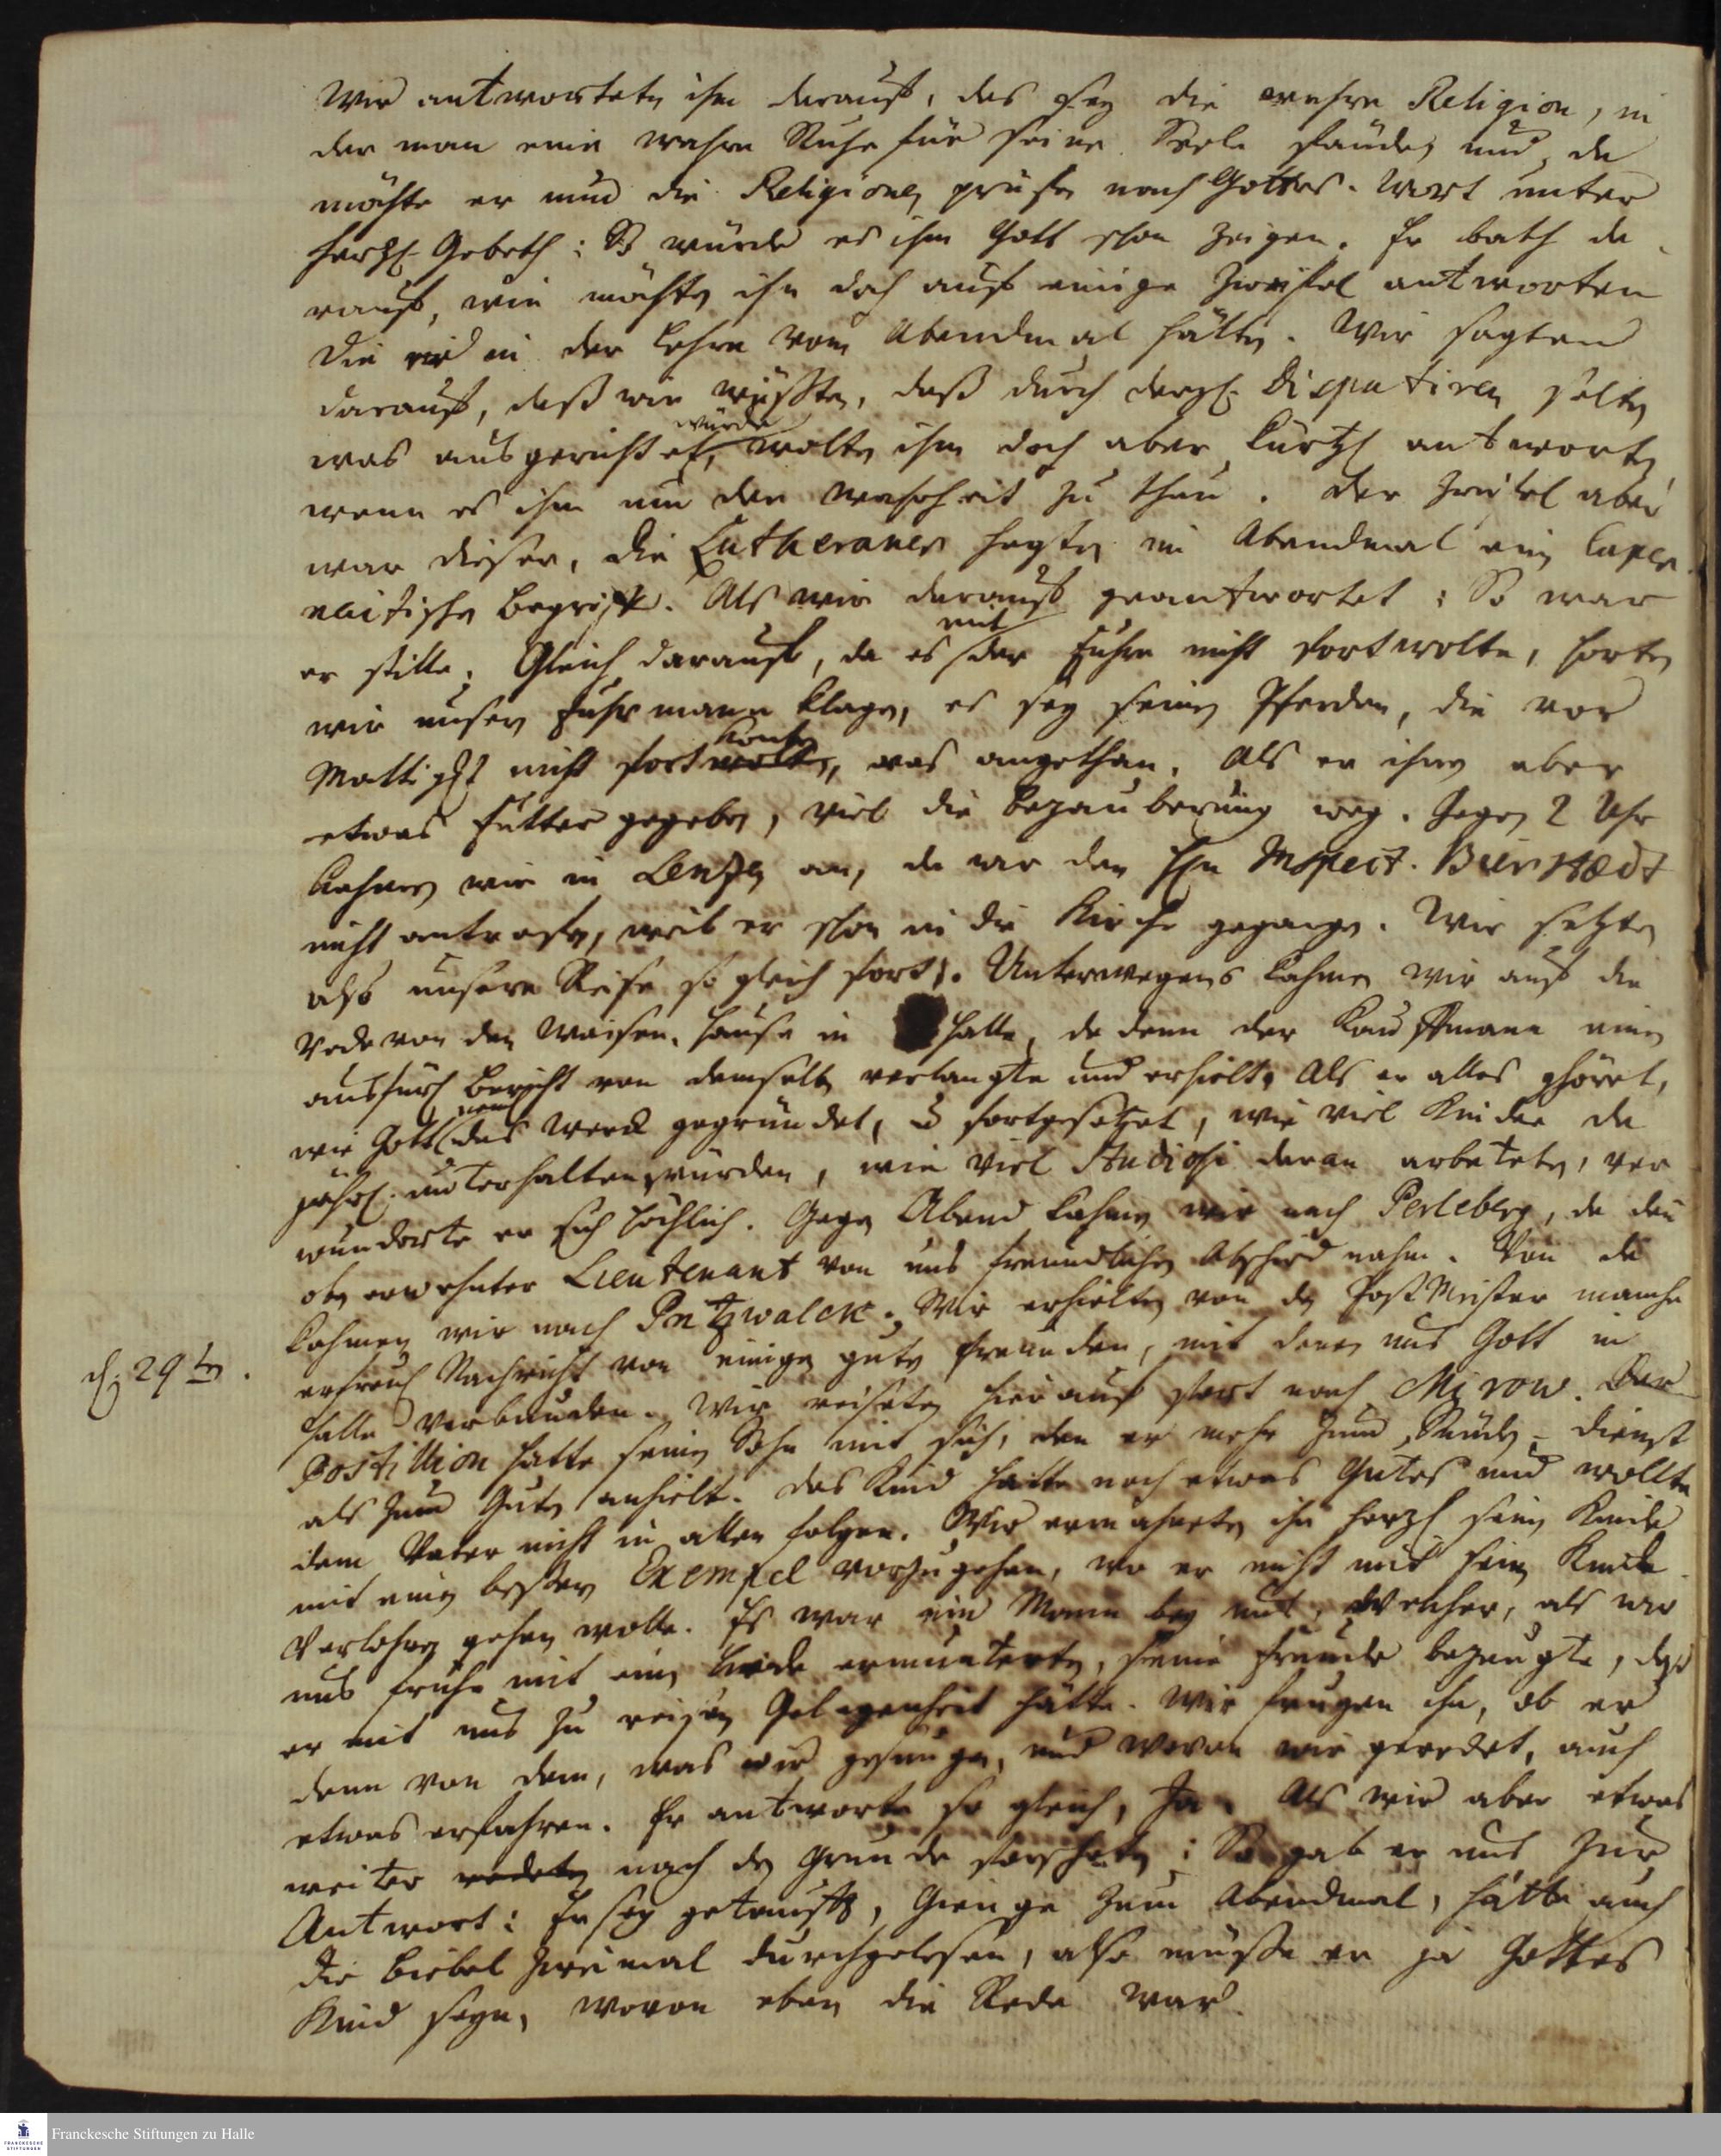 Wir antworteten ihm darauf, das sey die wahre Religion, in
der man eine wahre Ruhe für seine Seele fände, und da
möchte er nun die Religionen prüfen nach Gottes Wort unter
hertzl. Gebeth: So würde es ihm Gott schon zeigen. Er bath da-
rauf, wir möchten ihm doch auf einige Zweifel antworten
die wir in der Lehre vom Abendmal hätten. Wir sagten
darauf, daß wir wüßten, daß durch dergl. Disputiren selten
was ausgerichtet würde, wolten ihm doch aber kürtzl. antworten
wenn es ihm um der Warheit zu thun. Der Zweifel aber
war dieser, die Lutheraner hegten im Abendmal ein Caper-
naitischen Begriff. Als wir darauf geantwortet: So war
er stille. Gleich darauf, da es mit der Fuhre nicht fortwolte, hörten
wir unsern Fuhrmann klagen, es sey seinen Pferden, die vor
Mattigkt nicht fort wolten konten, was angethan. Als er ihnen aber
etwas Futter gegeben, viel die Bezauberung weg. Gegen 2 Uhr
kahmen wir in Lenzen an, da wir den Hn Inspect. Bürstædt
nicht antrafen, weil er schon in die Kirche gegangen. Wir setzten
also unsere Reise so gleich fort. Unterwegens kahmen wir auf die
Rede von den Waisen-Hause in Halle, da denn der Kauffmann einen
ausführl. Bericht von demselben verlangte und erhielt. Als er alles gehöret,
wie Gott das Werck gegründet, u fortgesetzet, wie viel Kinder da
jährl. unterhalten würden, wie viel Studiosi daran arbeteten, ver
wunderte er sich höchlich. Gegen Abend kahmen wir nach Perleberg, da der
oben erwehnter Lieutenant von uns freundlichen Abschied nahm. Von da
kahmen wir nach Pritzwalck. Wir erhielten von den PostMeister manche
d. 29ten.
erfreul. Nachricht von einigen guten Freunden, mit denen uns Gott in
Halle verbunden. Wir reiseten hierauf fort nach Mirow. Der
Postillion hatte seinen Sohn mit sich, den er mehr zum Sünden-Dienst
als zum Guten anhielt. Das Kind hatte noch etwas Gutes und wollte
dem Vater nicht in allen folgen. Wir ermahneten ihn hertzl. sein Kinde
mit einen bessern Exempel vorzugehen, wo er nicht mit sein Kinde
verlohren gehen wolle. Es war ein Mann bey uns, welcher, als wir
uns frühe mit ein Liede ermunterten, seine Freude bezeugte, daß
er mit uns zu reisen Gelegenheit hätte. Wir frugen ihn, ob er
denn von dem, was wir gesungen, und wovon wir geredet, auch
etwas erfahren. Er antworte so gleich, Ja. Als wir aber etwas
weiter redeten nach den Grunde forscheten: So gab er uns zur
Antwort: Er sey getaufft, Gienge zum Abendmal, hätte auch
die Biebel zweimal durchgelesen, also müsse er ja Gottes
Kind seyn, wovon eben die Rede war.
Franckesche Stiftungen zu Halle